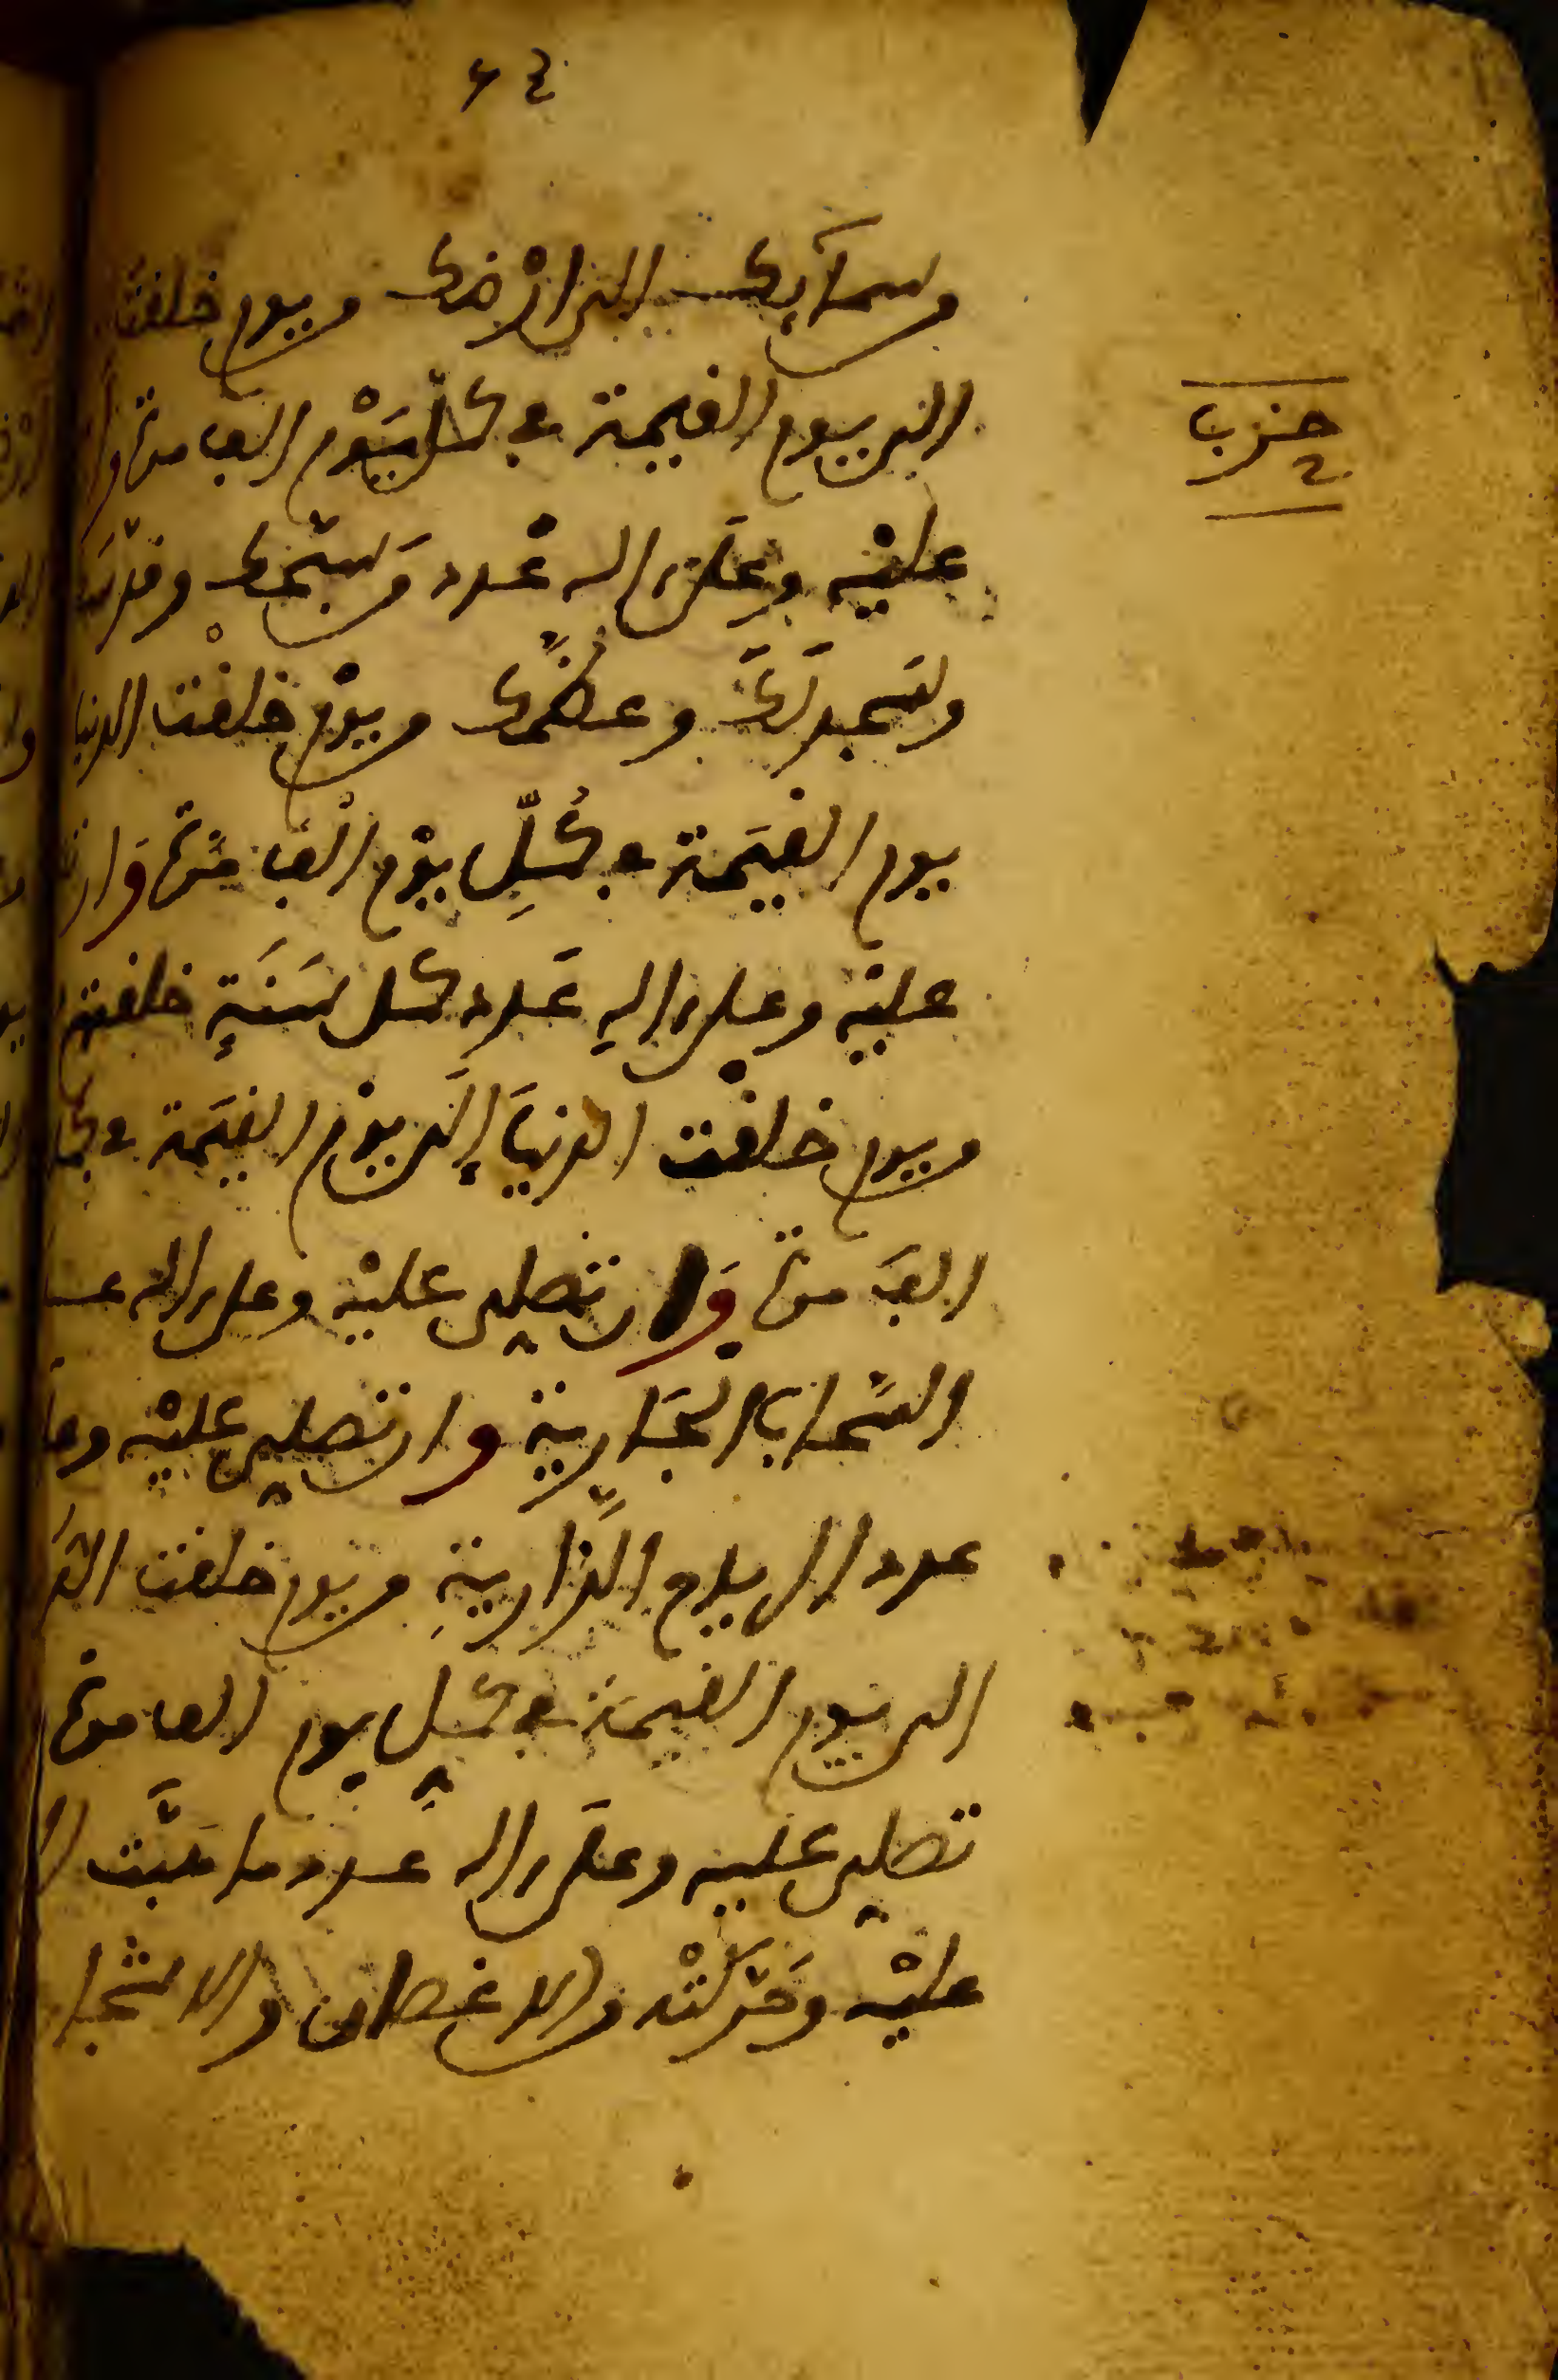 ٦٤
وسمآيك الى ارْضك ويوم خلقت
الى يوم القيمة في كل يَوْم الف مرة وان
حزب
عليْه وعلَى اله عَدد من سبّحك وقدّسك
وسَجد لَكَ وعظّمك ويوْم خلقْت الدنيا
يوم القيَمة في كُلِّ يوْم الْف مرّة وَان
عليْه وعلى الهِ عَدد كل سَنَةٍ خلقتها
ويوم خلقْت الدنيَا إلَى يوْم القيَمة في كل
الفَ مرة وَان تصلي عليْه وعلى اله عدد
السَّحاب الجَاريةِ وان تصلي عليْه وعلى
عدد الرياح الذَّاريةِ ويوم خلقت الدنيا
الى يَوم القيمَة في كل يوم الف مرة
تصلي عليه وعلَى اله عدد ما هَبَّت
عليْه وحَرّكَتْه والاغصان والاشجار